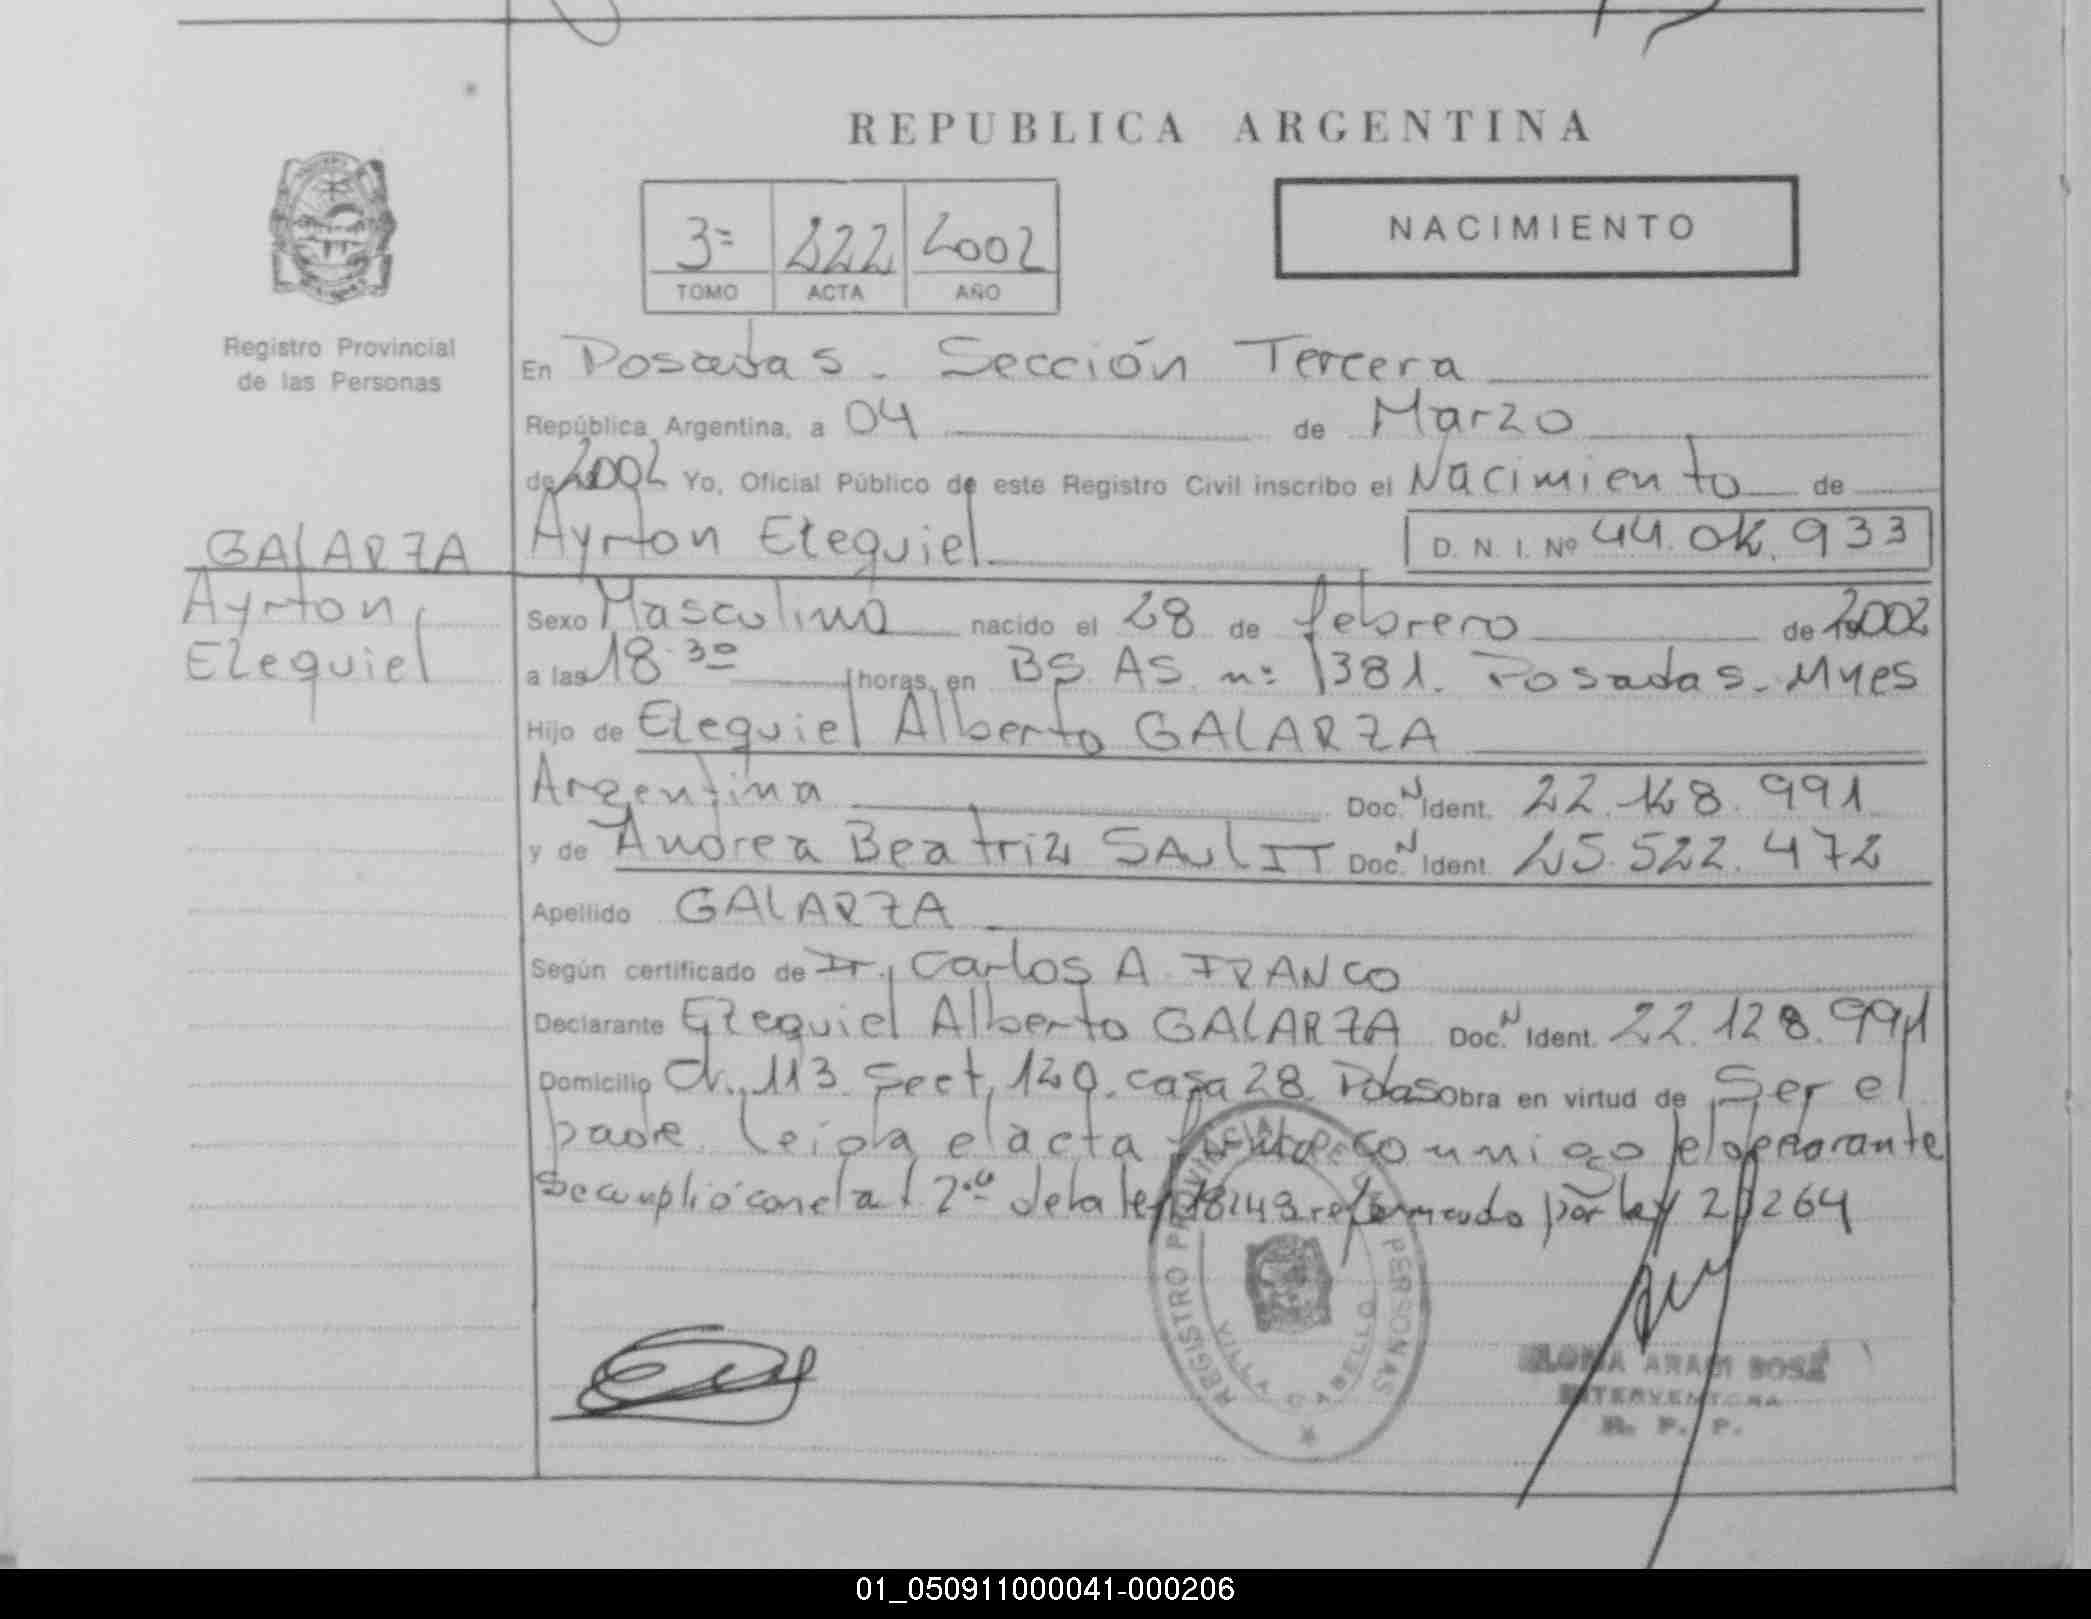 REPUBLICA ARGENTINA
NACIMIENTO
3º 222 2002
TOMO ACTA AÑO
Registro Provincial
de las Personas
En Posadas. Sección Tercera
República Argentina, a 04 de Marzo
de 2002 Yo, Oficial Público de este Registro Civil inscribo el Nacimiento de
GALARZA
Ayrton Ezequiel D. N. I. Nº 44. 933
Ayrton
Ezequiel
Sexo Masculino nacido el 28 de febrero de 2002
a las 18.30 horas, en BS. AS. nº 1381. Posadas. Mnes
Hijo de Ezequiel Alberto GALARZA
Argentina Doc. N Ident. 22.128.991
y de Andrea Beatriz Doc. N Ident. 25.522.472
Apellido GALARZA
Según certificado de Carlos A. FRANCO
Declarante Ezequiel Alberto GALARZA Doc. N Ident. 22.128.991
Domicilio Ch. 113. Sect. 120. casa 28. Pdas Obra en virtud de Ser el
padre. Leida el acta conmigo el declarante
Se cumplió con el art. 2º de la ley 18248 reformado por ley 23264
REGISTRO PROVINCIAL DE LAS PERSONAS
VILLA CABELLO
INTERVENTORA
R. P. P.
01_050911000041-000206